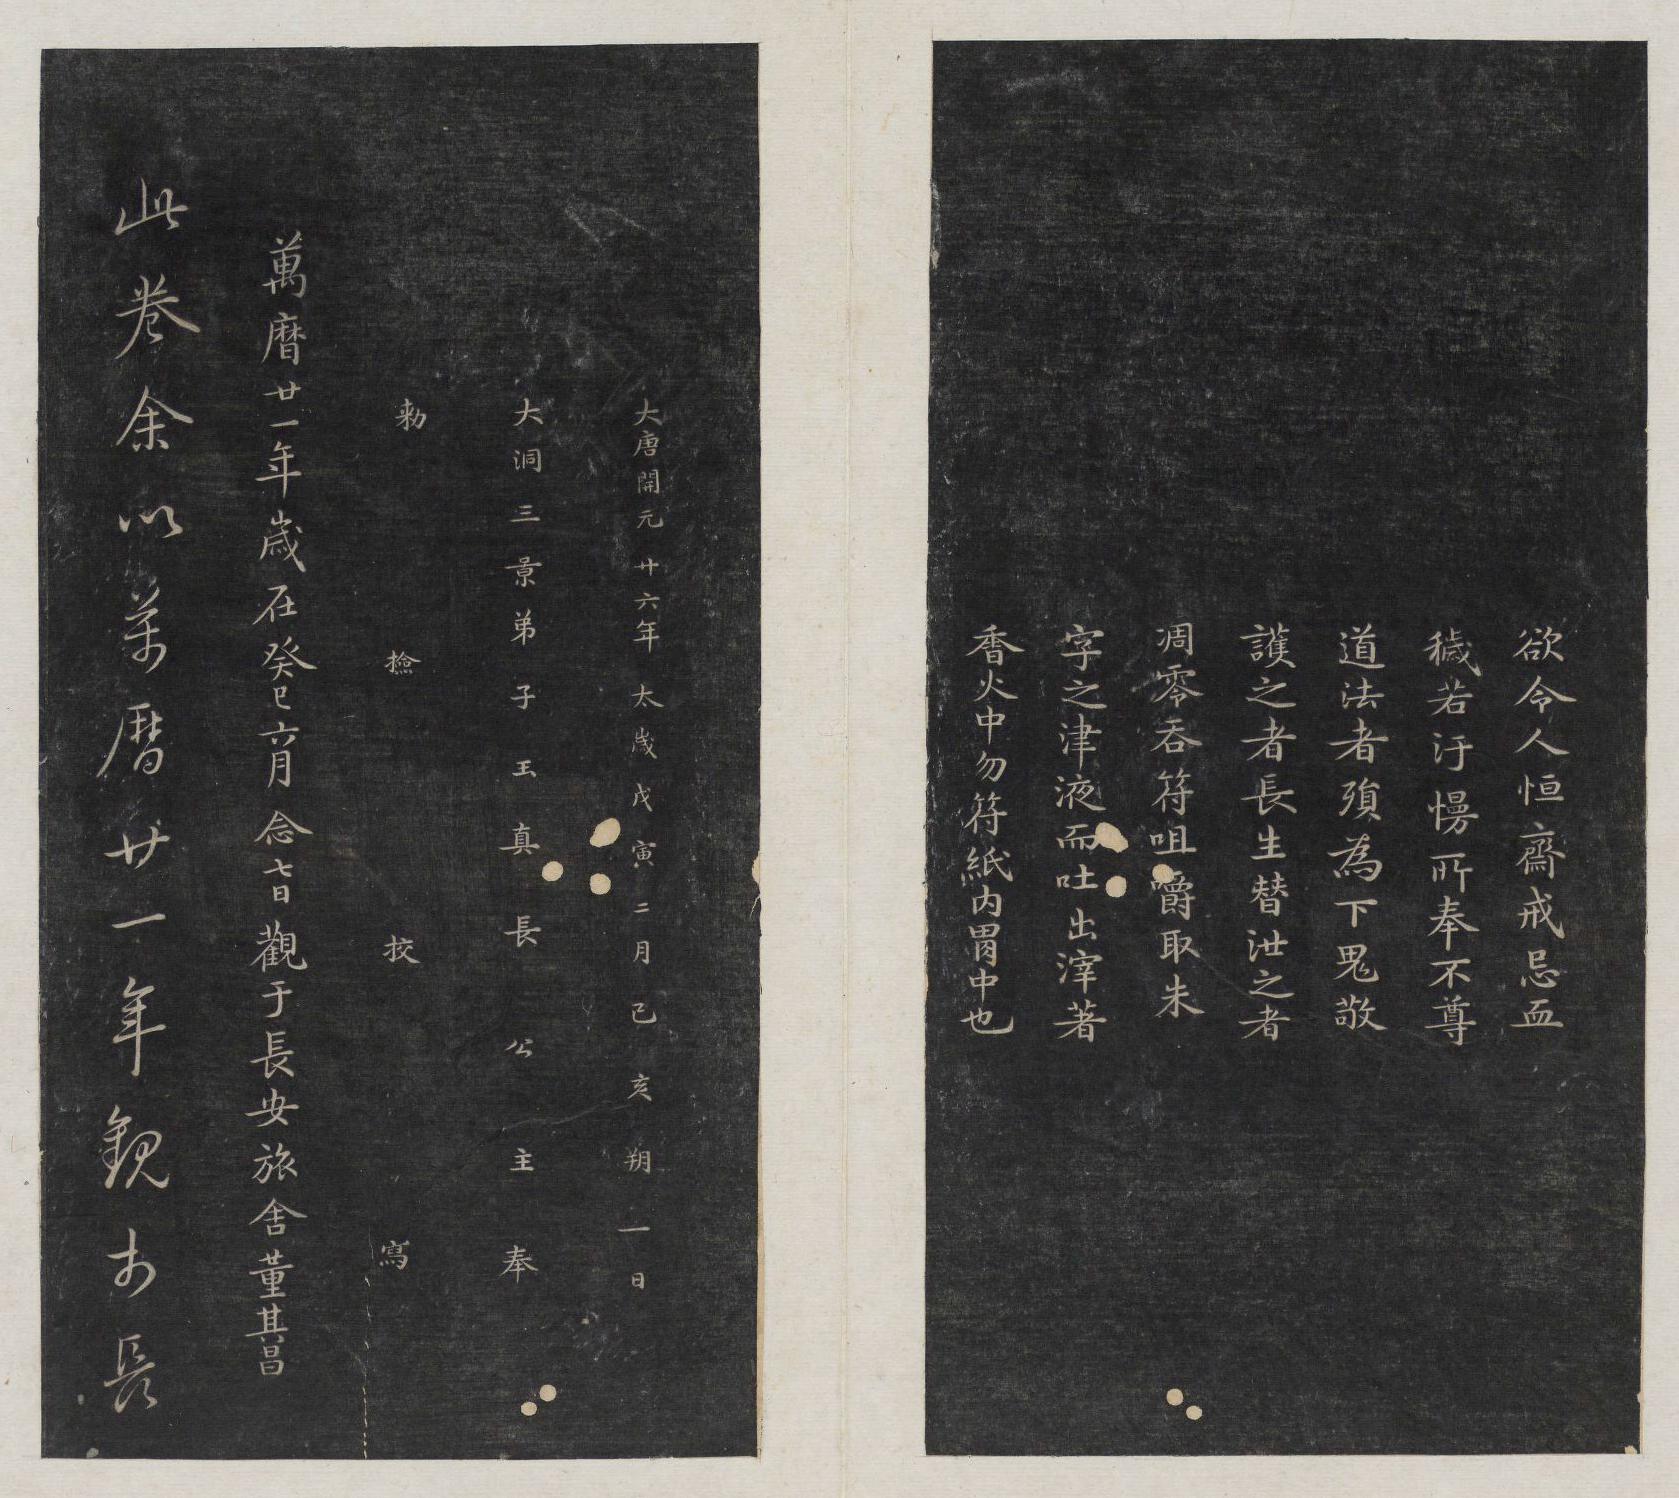 欲令人恒齋戒忌血
穢若汙慢所奉不尊
道法者殞為下鬼敬
護之者長生替泄之者
凋零吞符咀嚼取朱
字之津液而吐出滓著
香火中勿符紙內胃中也
大唐開元廿六年太歲戊寅二月己亥朔一日
大洞三景弟子玉真長公主奉
勅檢校寫
萬曆廿一年歲在癸巳六月念七日觀于長安旅舍董其昌
此卷余以萬曆廿一年觀於長